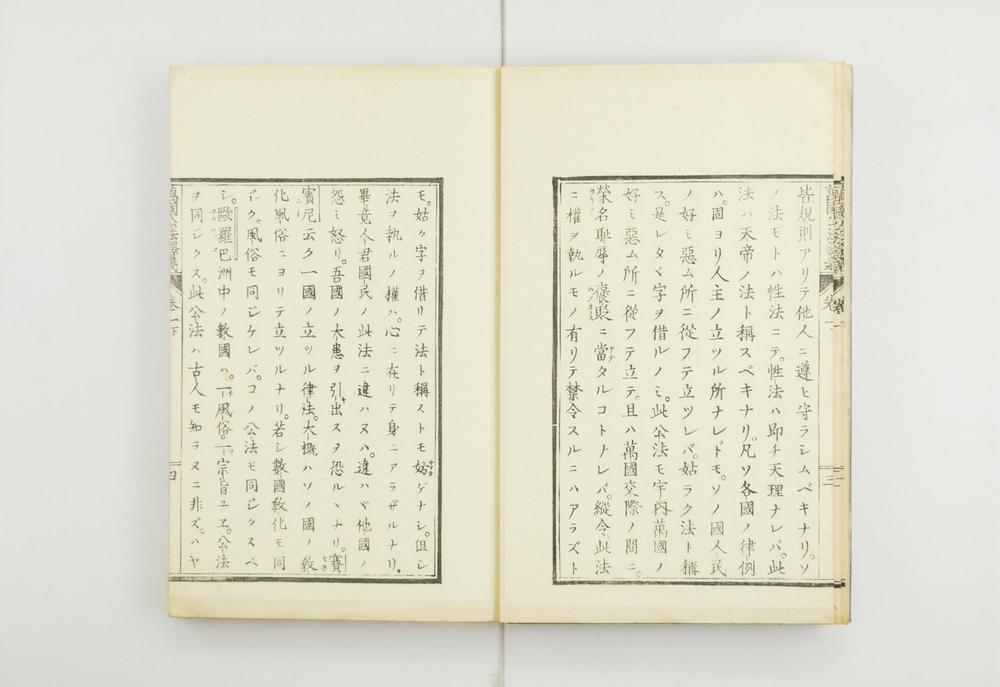 皆規則アリテ他人ニ遵ヒ守ラシムベキナリ。ソ
ノ法モトハ性法ニテ。性法ハ即チ天理ナレバ。此
法ハ天帝ノ法ト稱スベキナリ。凡ソ各國ノ律例
ハ。固ヨリ人主ノ立ツル所ナレドモ。ソノ國人民
ノ好ミ惡ム所ニ從フテ立ツレバ。姑ラク法ト稱
ス。是レタヾ字ヲ借ルノミ。此公法モ宇內萬國ノ
好ミ惡ム所ニ從フテ立テ。且ハ萬國交際ノ間ニ。
榮名耻辱ノ褒貶ニ當タルコトナレバ。縱令此法
ニ權ヲ執ルモノ有リテ禁令スルニハアラズト
三
モ。姑ク字ヲ借リテ法ト稱ストモ妨ゲナシ。但シ
法ヲ執ルノ權ハ。心ニ在リテ身ニアラザルナリ。
畢竟人君國民ノ此法ニ違ハヌハ。違ハヾ他國ノ
怨ミ怒リ。吾國ノ大患ヲ引出スヲ恐ルヽナリ。賽
賓尼云ク一國ノ立ツル律法。大概ハソノ國ノ敎
化風俗ニヨリテ立ツルナリ。若シ數國敎化モ同
ジク。風俗モ同ジケレバ。コノ公法モ同ジクスベ
シ。歐羅巴洲中ノ數國ハ。一風俗。一宗旨ユヱ。公法
ヲ同ジクス。此公法ハ古人モ知ラヌニ非ズ。ハヤ
萬國公法釋義
卷一下
四